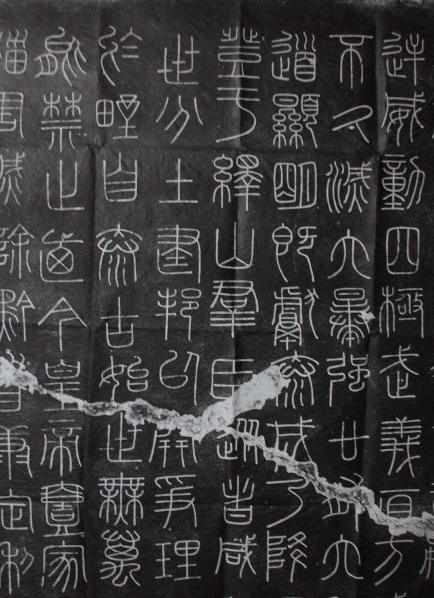 逆威動四極武義直方
不久滅六暴強廿有六
道顯明既獻泰成乃降
登于繹山群臣從者咸
世分土建邦以開爭理
於野自泰古始世無萬
能禁止廼今皇帝壹家
災害滅除黔首康定利